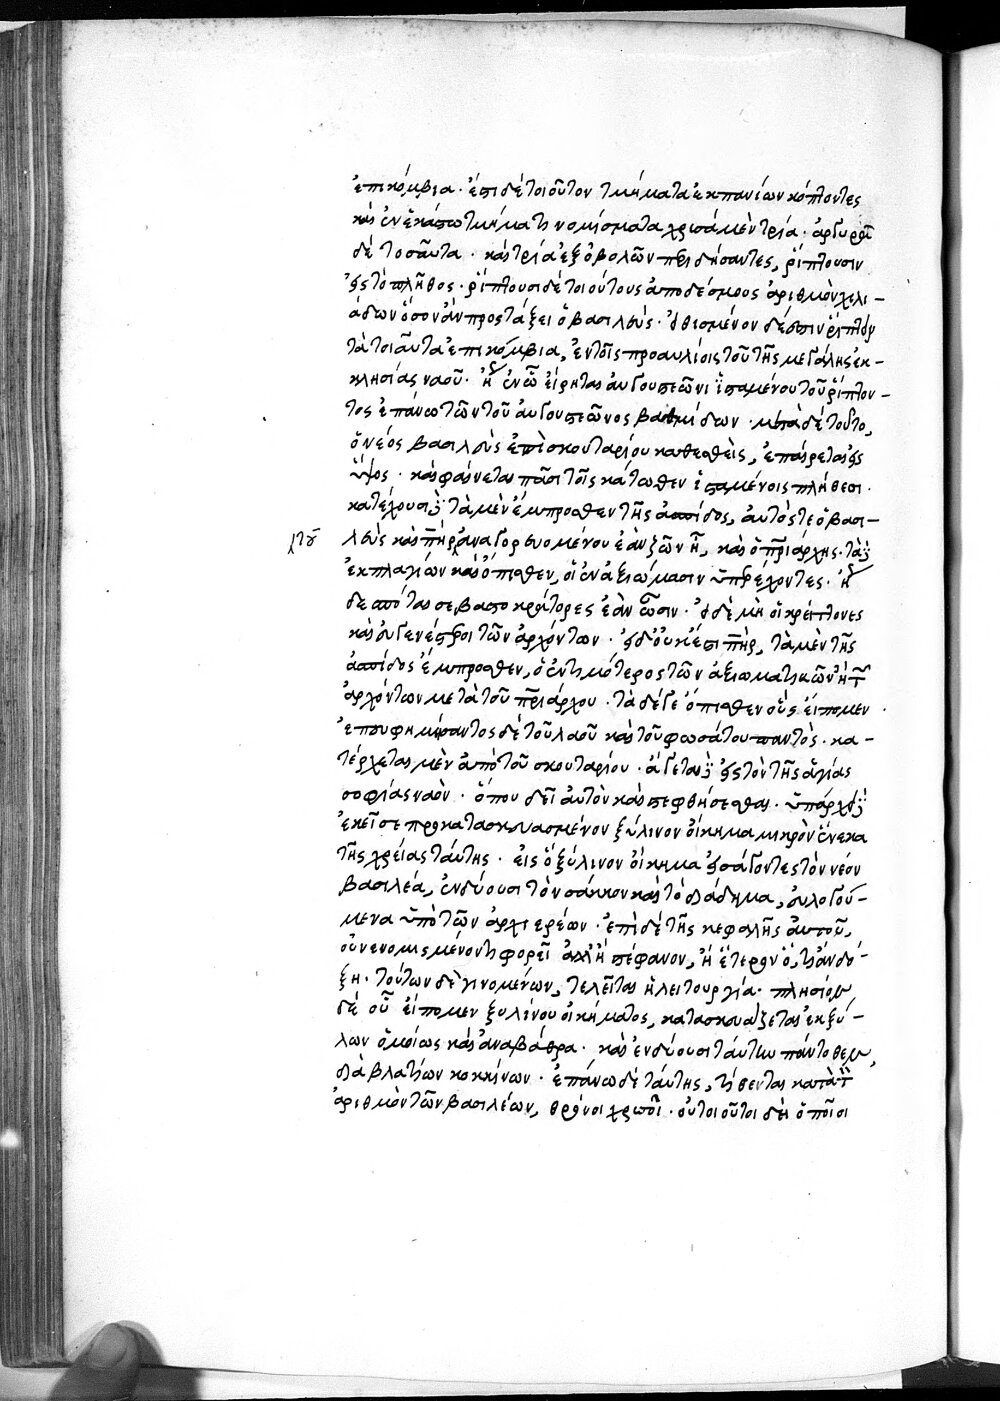 ἐπικόμβια. ἔστι δὲ τοιοῦτον τμήματα ἐκ πανίων κόπτοντες
καὶ ἐν ἑκάστω τμήματι νομίσματα χρυσᾶ μὲν τρία. ἀργυρᾶ
δὲ τοσαῦτα. καὶ τρία ἐξ ὀβολῶν περιδήσαντες, ῥίπτουσιν
εἰς τὸ πλῆθος. ῥίπτουσι δὲ τοιούτους ἀποδέσμους ἀριθμὸν χιλι-
άδων ὅσον ἂν προστάξει ὁ βασιλεὺς. εἰθισμένον δέ ἐστιν ῥίπτειν
τὰ τοιαῦτα ἐπικόμβια, ἐν τοῖς προαυλίοις τοῦ τῆς μεγάλης ἐκ-
κλησίας ναοῦ. ἢ ἐν ὧ εἴρηται αὐγουστεῶνι ἱσταμένου τοῦ ῥίπτον-
τος ἐπάνω τῶν τοῦ αὐγουστεῶνος βαθμίδων. μετὰ δὲ τοῦτο,
ὁ νέος βασιλεὺς ἐπὶ σκουταρίου καθεσθεὶς, ἐπαίρεται εἰς
ὕψος. καὶ φαίνεται πᾶσι τοῖς κάτωθεν ἱσταμένοις πλήθεσι.
κατέχουσι δὲ τὰ μὲν ἔμπροσθεν τῆς ἀσπίδος, αὐτός τε ὁ βασι-
λεὺς καὶ πατὴρ τοῦ ἀναγορευομένου ἐὰν ζῶν ἦ, καὶ ὁ πατριάρχης. τὰ δὲ
ἐκ πλαγίων καὶ ὄπισθεν, οἱ ἐν ἀξιώμασιν ὑπερέχοντες. ἢ
δεσπόται σεβαστοκράτορες ἐὰν ὦσιν. εἰ δὲ μὴ οἱ κρείττονες
καὶ εὐγενέστεροι τῶν ἀρχόντων. εἰ δ' οὐκ ἔστι πατὴρ, τὰ μὲν τῆς
ἀσπίδος ἔμπροσθεν, ὁ ἐντιμότερος τῶν ἀξιωματικῶν ἢ τῶν
ἀρχόντων μετὰ τοῦ πατριάρχου. τὰ δέ γε ὄπισθεν οὓς εἴπομεν.
ἐπευφημήσαντος δὲ τοῦ λαοῦ καὶ τοῦ φωσάτου παντὸς. κα-
τέρχεται μὲν ἀπὸ τοῦ σκουταρίου. ἄγεται δὲ εἰς τὸν τῆς ἁγίας
σοφίας ναὸν. ὅπου δεῖ αὐτὸν καὶ στεφθήσεσθαι. ὑπάρχει δὲ
ἐκεῖσε προκατασκευασμένον ξύλινον οἴκημα μικρὸν ἕνεκα
τῆς χρείας ταύτης. εἰς ὃ ξύλινον οἴκημα εἰσάγοντες τὸν νέον
βασιλέα, ἐνδύουσι τὸν σάκκον καὶ τὸ διάδημα, εὐλογού-
μενα ὑπὸ τῶν ἀρχιερέων. ἐπὶ δὲ τῆς κεφαλῆς αὐτοῦ,
οὐ νενομισμένον τι φορεῖ ἀλλ' ἢ στέφανον, ἢ ἕτερον ὅ, τι ἂν δό-
ξη. τούτων δὲ γινομένων, τελεῖται ἡ λειτουργία. πλησίον
δὲ οὗ εἴπομεν ξυλίνου οἰκήματος, κατασκευάζεται ἐκ ξύ-
λων ὁμοίως καὶ ἀναβάθρα. καὶ ἐνδύουσι ταύτην πάντοθεν,
διὰ βλατίων κοκκίνων. ἐπάνω δὲ ταύτης, τίθενται κατὰ τὸν
ἀριθμὸν τῶν βασιλέων, θρόνοι χρυσοῖ. οὐ τοιοῦτοι δὲ ὁποῖοι